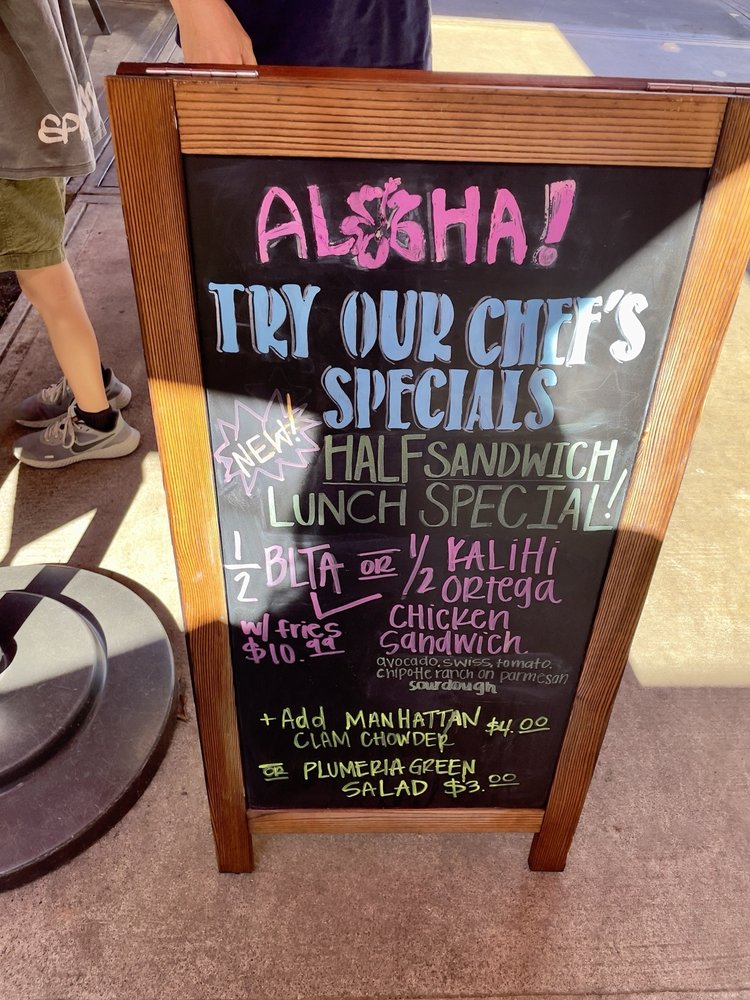 ALOHA!
TRY OUR CHEF'S
SPECIALS
NEW!
HALF SANDWICH
LUNCH SPECIAL!
1/2 BLTA OR 1/2 KALIHI
ORTEGA
CHICKEN
SANDWICH
w/ fries
$10.99
avocado, swiss, tomato,
chipotle ranch on parmesan
sourdough
+ Add MANHATTAN $4.00
CLAM CHOWDER
OR PLUMERIA GREEN
SALAD $3.00